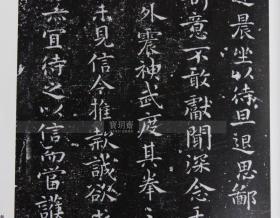 晨坐以待旦退思鄙
意不敢獻聞深念
外震神武度其拳
未見信今推款誠欲
亦宜待之以信而當護
寶玥齋